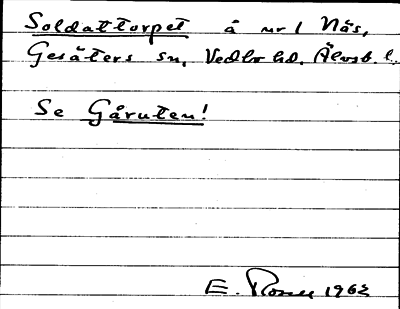 Soldattorpet å nr 1 Näs,
Gesäters sn, Vedbo hd. Älvsb. l.
Se Gåruten!
E. 1962